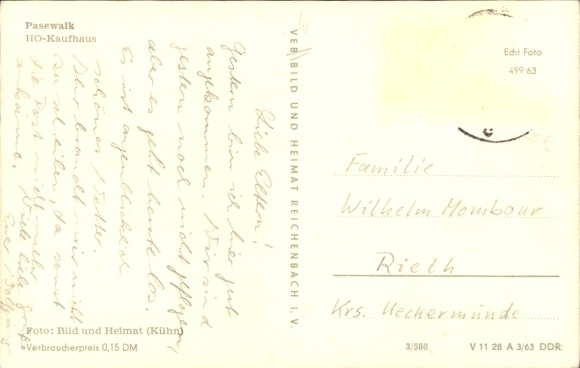 Pasewalk
HO-Kaufhaus
Liebe Eltern!
Gestern bin ich hier gut
angekommen. Wir sind
gestern noch nicht geflogen,
aber es geht heute los.
Es ist augenblicklich
schönes Wetter.
Ihr braucht mir nicht
zu schreiben, da sonst
die Post nicht mehr
ankäme. Viele liebe Grüße
Euer
Foto: Bild und Heimat (Kühn)
Verbraucherpreis 0,15 DM
VEB BILD UND HEIMAT REICHENBACH I. V.
Echt Foto
499/63
Familie
Wilhelm Mombour
Rieth
Krs. Ueckermünde
3/580
V 11 28 A 3/63 DDR